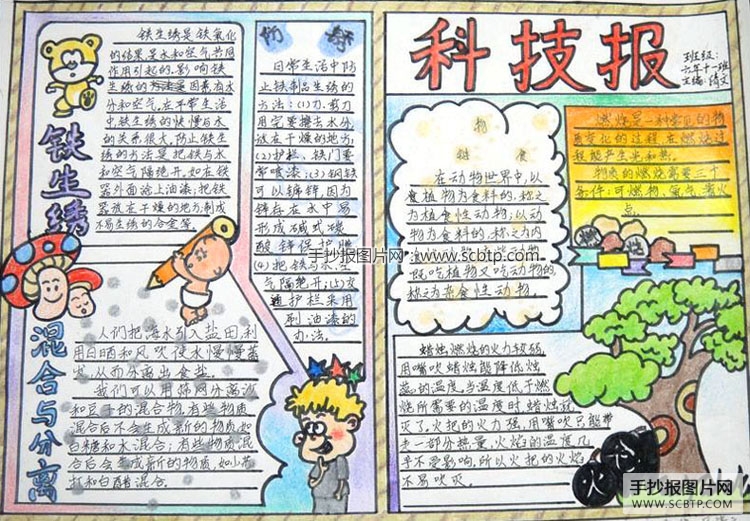 铁生绣
铁生绣是铁氧化
的结果是水和空气共同
作用引起的.影响铁
生绣的因素有水
分和空气.在平常生活
中,铁生绣的快慢与水
的关系很大,防止铁生
绣的方法是把铁与水
和空气隔绝开.如在铁
器外面涂上油漆;把铁
器放在干燥的地方;制成
不易生绣的合金等.
防
日常生活中防
止铁制品生绣的
方法:(1)刀.剪刀
用完要擦去水分.
放在干燥的地方;
(2)护栏、铁门要
常喷漆;(3)钢铁
可以镀锌,因为
锌存在水中易
形成碱式碳
酸锌保护膜
(4)把铁与水.空
气隔绝开;
护栏采用
刷油漆的
办法.
混合与分离
人们把海水引入盐田,利
用日晒和风吹使水慢慢蒸
发,从而分离出食盐.
我们可以用筛网分离沙
和豆子的混合物,有些物质
混合后不会生成新的物质如
白糖和水混合;有些物质混
合后会生成新的物质,如小苏
打和白醋混合.
科技报
班级:
六年十一班
主编:倩文
物
链 食
在动物世界中,以
食植物为食料的,称之
为植食性动物;以动
物为食料的,称之为肉
既吃植物又吃动物的
称之为杂食性动物.
燃烧是一种常见的物
质变化的过程.在燃烧过
程能产生光和热.
物质的燃烧需要三个
条件:可燃物、氧气、着火
点.
燃烧
蜡烛燃烧的火力较弱,
用嘴吹蜡烛能降低烛
蕊的温度,当温度低于燃
烧所需要的温度时,蜡烛就
灭了,火把的火力强,用嘴吹只能带
走一部分热量,火焰的温度几
乎不受影响,所以火把的火焰
不易吹灭.
火
手抄报图片网:www.scbtp.com
手抄报图片网
WWW.SCBTP.COM